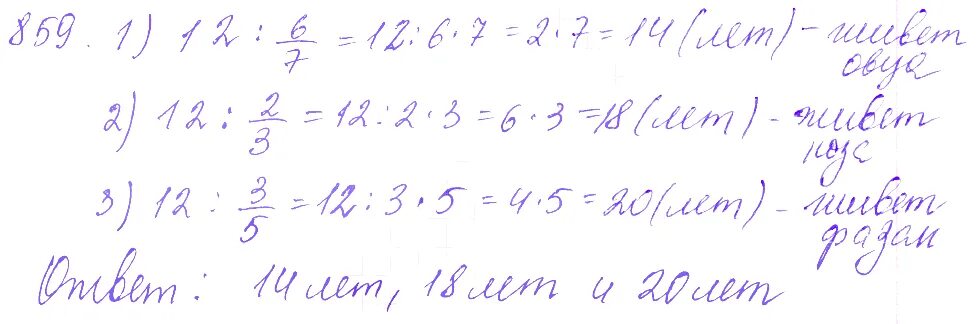 859. 1) 12 : 6/7 = 12:6·7 = 2·7 = 14 (лет) - живет
овца
2) 12 : 2/3 = 12:2·3 = 6·3 = 18 (лет) - живет
коза
3) 12 : 3/5 = 12:3·5 = 4·5 = 20 (лет) - живет
фазан
Ответ: 14 лет, 18 лет и 20 лет